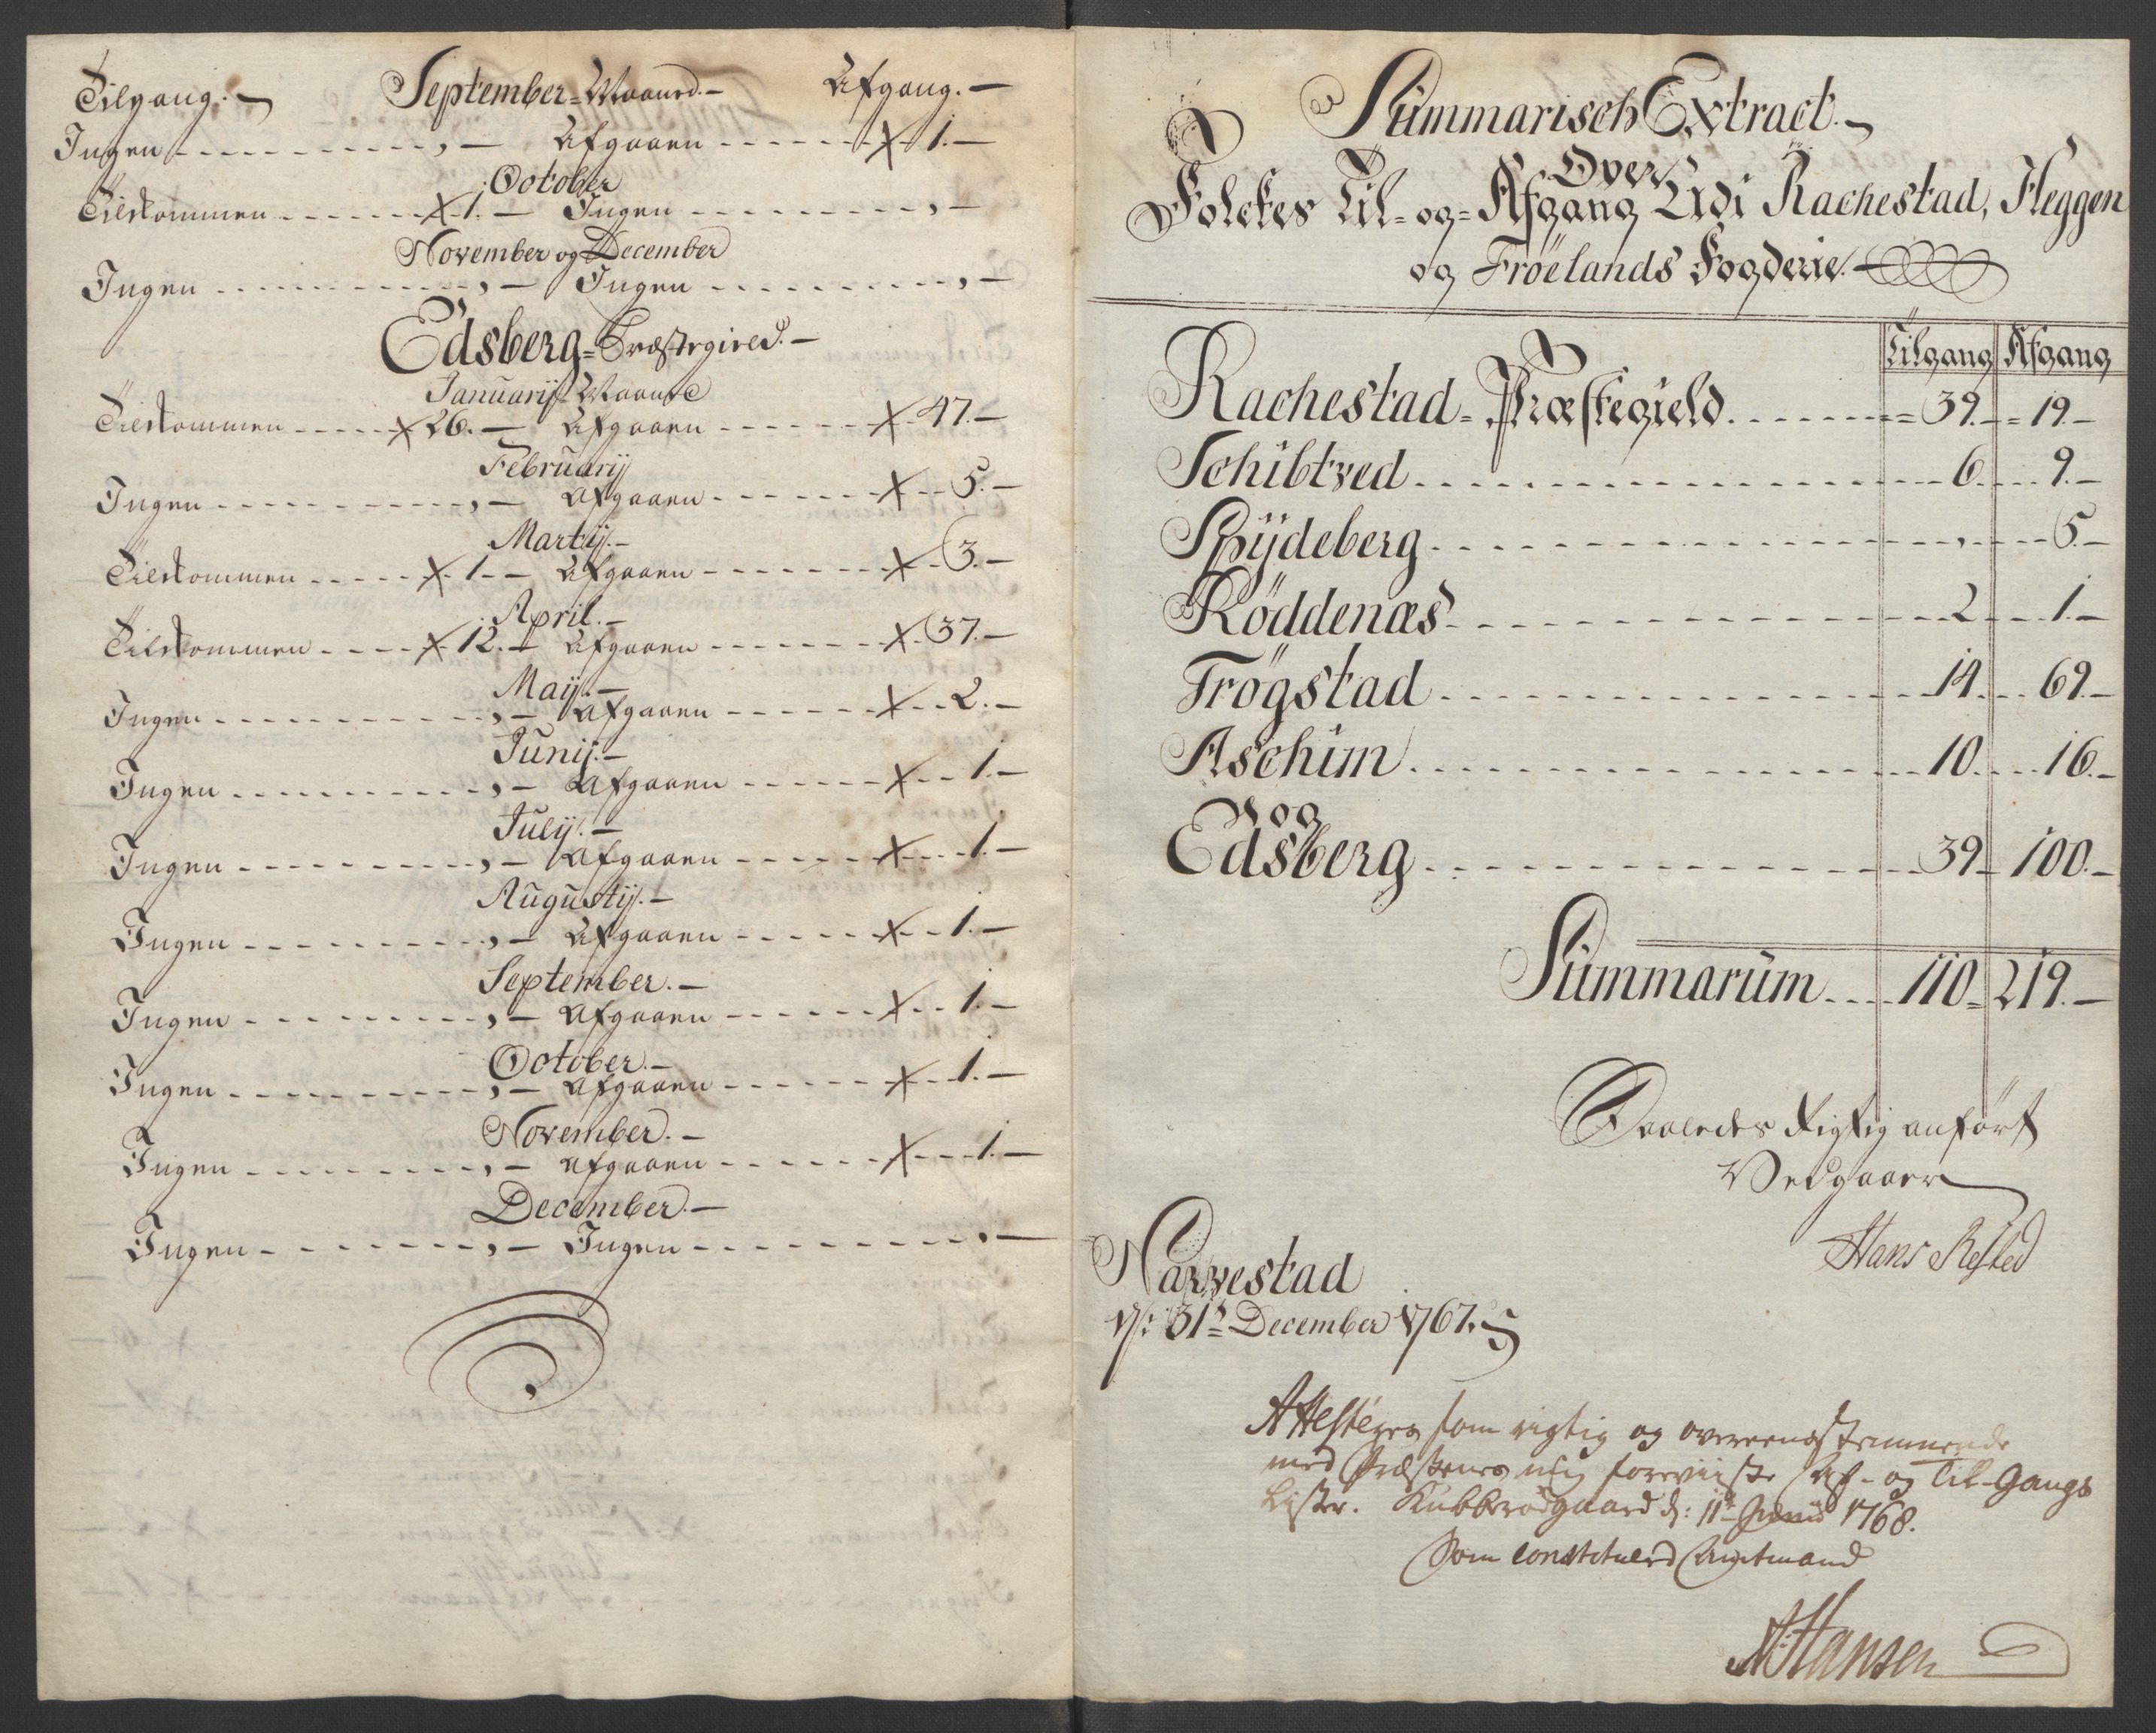 Tilgang. September-Maaned.- Afgang.-
Ingen - - - - , - Afgaaen - - - - X 1.-
October
Tilkommen - - - - X 1.- Ingen - - - - , -
November og December
Ingen - - - - , - Ingen - - - - , -
Edsberg-Præstegield.-
Januarij-Maaned
Tilkommen - - - - X 26.- Afgaaen - - - - X 47.-
Februarij
Ingen - - - - , - Afgaaen - - - - X - - 5.-
Martij.-
Tilkommen - - - - X 1.- Afgaaen - - - - X - 3.-
April.-
Tilkommen - - - - X 12.- Afgaaen - - - - X 37.-
Maij.-
Ingen - - - - , - Afgaaen - - - - X - - 2.-
Junij.-
Ingen - - - - , - Afgaaen - - - - X - - 1.-
Julij.-
Ingen - - - - , - Afgaaen - - - - X - - 1.-
Augustij.-
Ingen - - - - , - Afgaaen - - - - X - - 1.-
September.-
Ingen - - - - , - Afgaaen - - - - X - - 1.-
October.-
Ingen - - - - , - Afgaaen - - - - X - - 1.-
November.-
Ingen - - - - , - Afgaaen - - - - X - - 1.-
December.-
Ingen - - - - , - Ingen - - - - , -
Summarisch Extract.-
Over
Folckes Til- og- Afgang Udi Rachestad, Heggen
og Frøelands Fogderie.
Tilgang Afgang
Rachestad-Præstegield. - - - - 39.- = 19.-
Schibtved - - - - 6. - - 9.-
Spÿdeberg - - - - , - - 5.-
Röddenæs - - - - 2 - - 1.-
Trögstad - - - - 14. - - 69.-
Aschim - - - - 10. - - 16.-
og
Edsberg - - - - 39.- 100.-
Summarum - - - 110 = 219.-
Saaledes Rigtig anført
Vedgaaer
Hans Rested
Narvestad
d: 31te December 1767.
Attesteres som rigtig og overeenstemmende
med Præsternes mig foreviiste Af- og Til-Gangs
Lister. Kubberødgaard d: 11te Junii 1768.
Som constituered Amtmand
AHansen